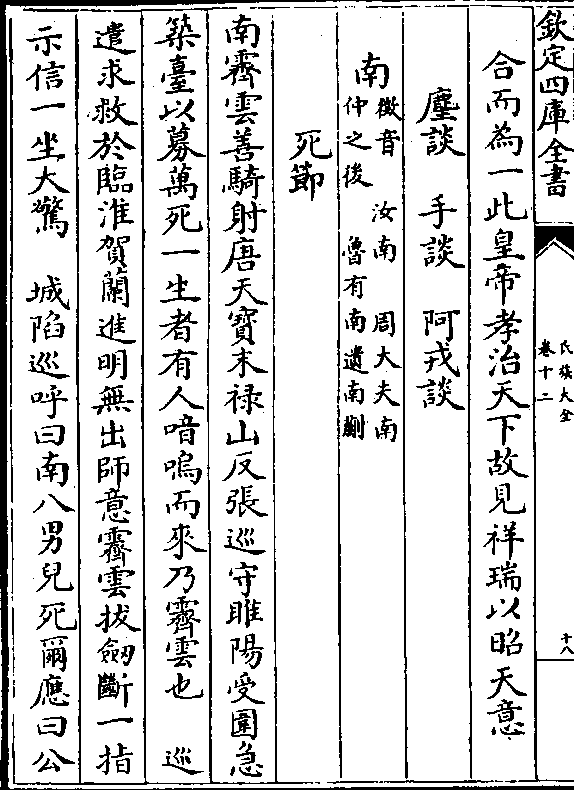 欽定四庫全書
氏族大全
卷十二
十八
合而為一此皇帝孝治天下故見祥瑞以昭天意
麈談 手談 阿戎談
南 徵音 汝南 周大夫南
仲之後 魯有南遺南蒯
死節
南霽雲善騎射唐天寶末禄山反張巡守睢陽受圍急
築臺以募萬死一生者有人喑嗚而來乃霽雲也 巡
遣求救於臨淮賀蘭進明無出師意霽雲拔劒斷一指
示信一坐大驚 城陷巡呼曰南八男兒死爾應曰公